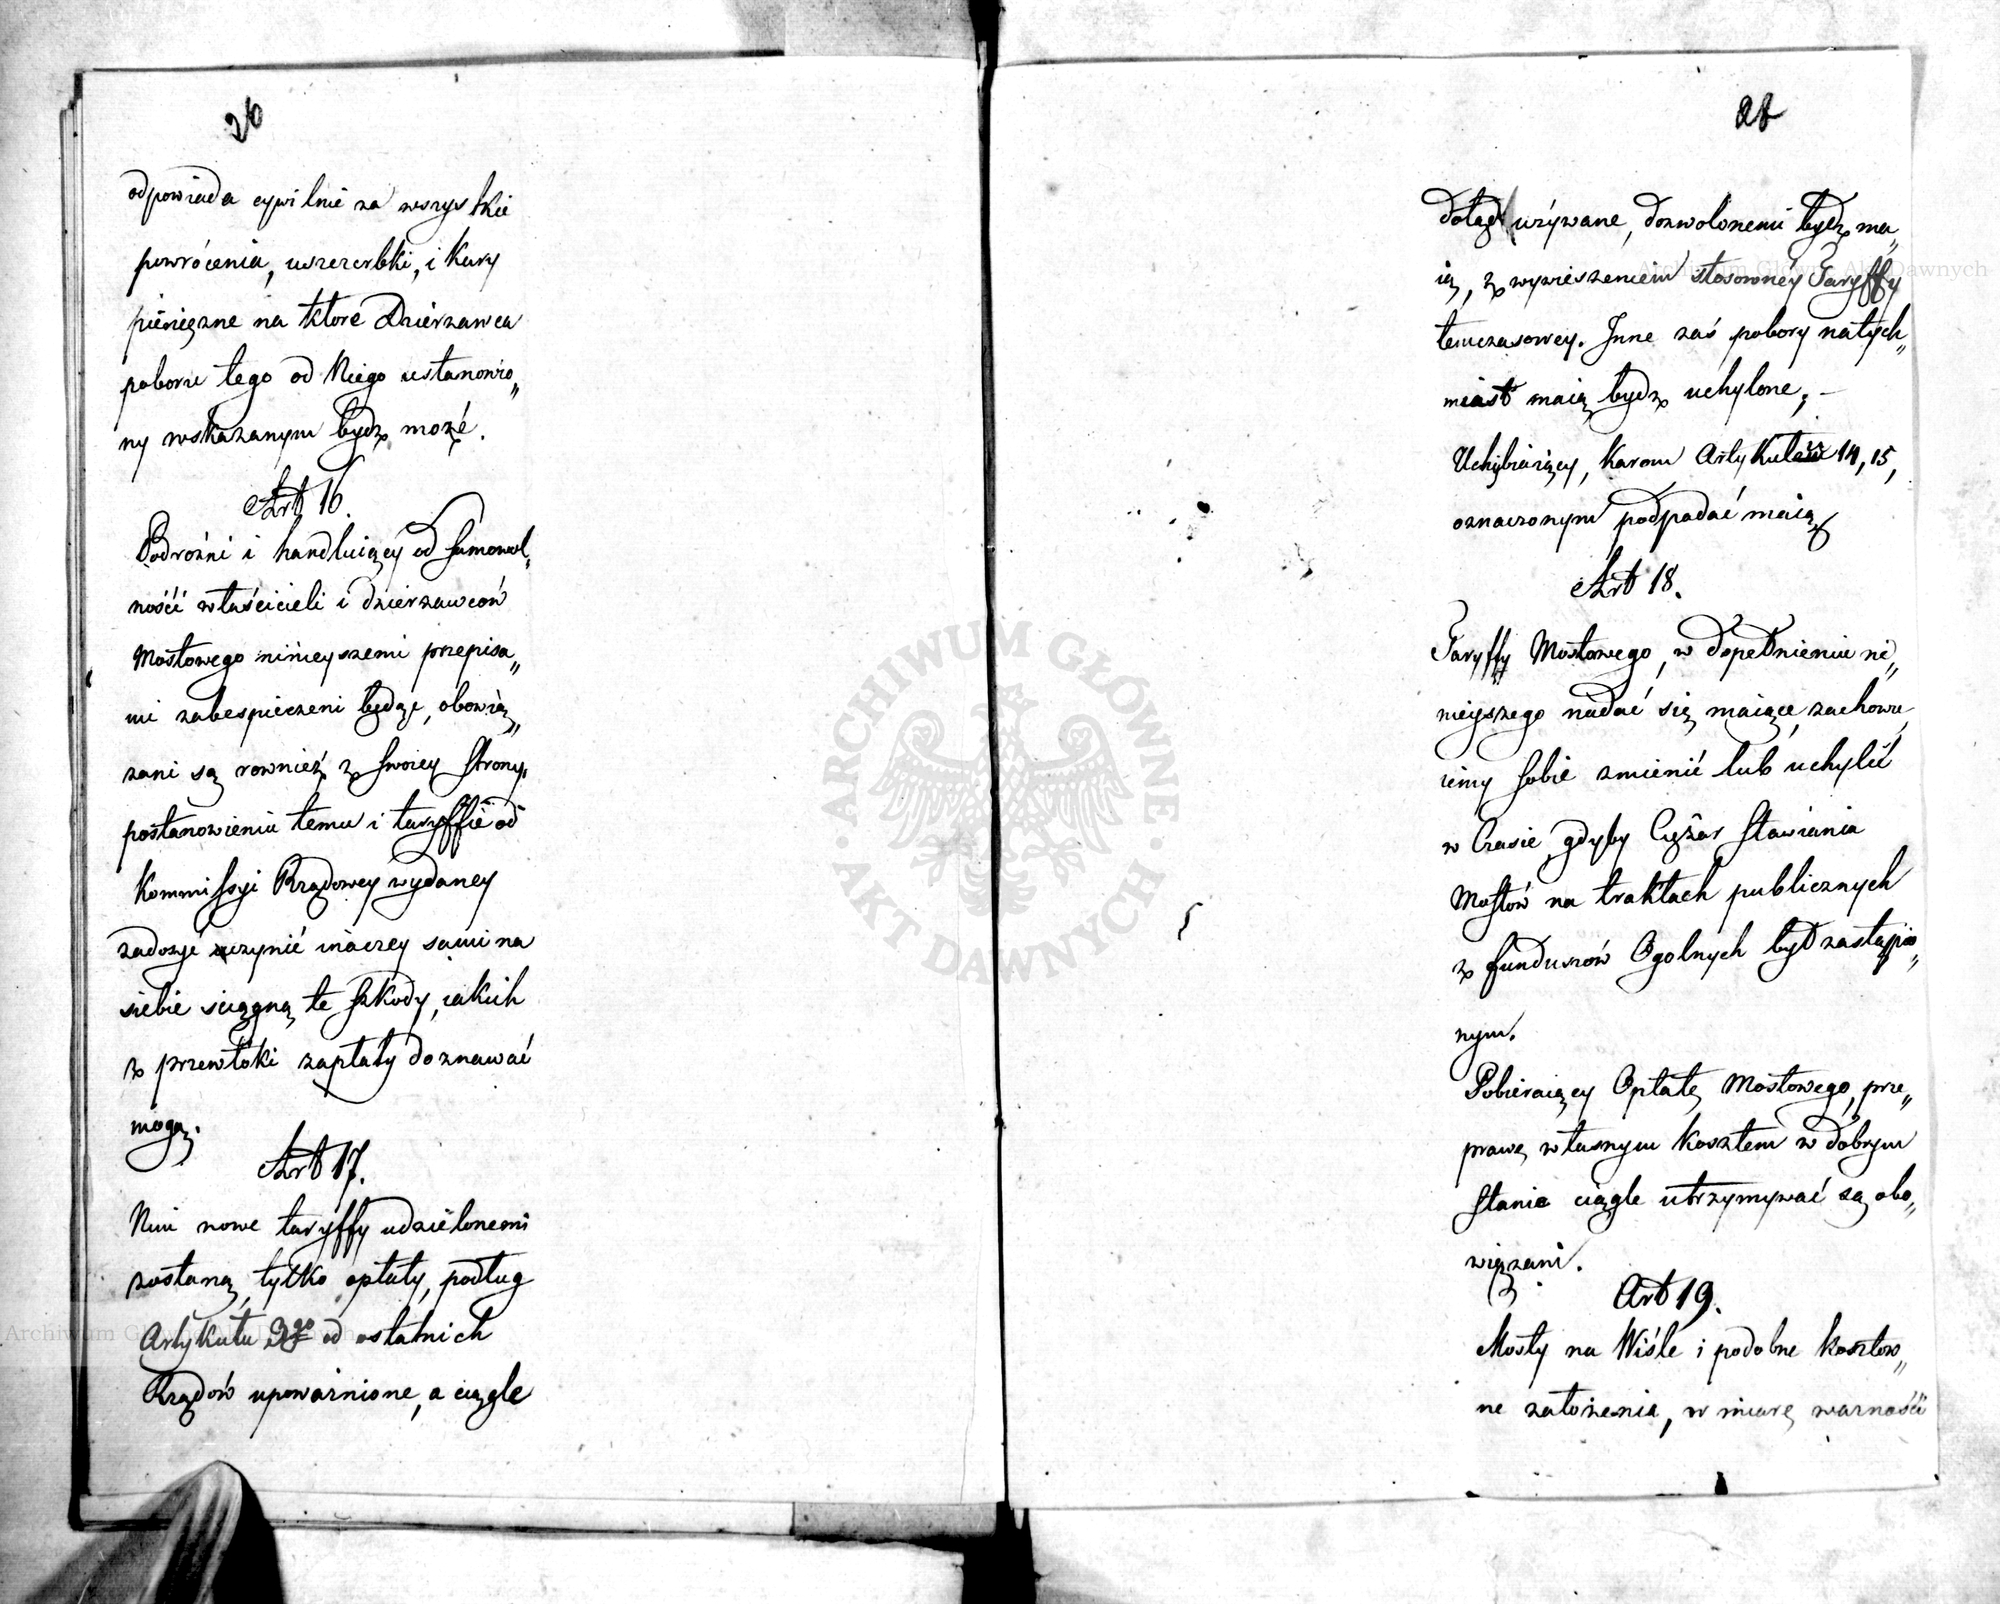 26
odpowiada cywilnie za wszystkie
powrócenia, uszczerbki, i kary
pieniężne na ktore Dzierzawca
poboru tego od Niego ustanowio„
ny wskazanym bydz może.
Art 16.
Podrożni i handluiący od samowol„
ności właścicieli i dzierzawców
Mostowego ninieyszemi przepisa„
mi zabespieczeni będąc, obowią„
zani są rownież z swoiey strony,
postanowieniu temu i taryffie od
Kommissyi Rządowey wydaney
zadosyć uczynić inaczey sami na
siebie sciągną te szkody, iakich
z przewłoki zapłaty doznawać
mogą.
Art 17.
Nim nowe taryffy udzielonemi
zostaną, tylko opłaty, podług
Artykułu 2go od ostatnich
Rządów upoważnione, a ciągle
dotąd używane, dozwolonemi bydz ma„
ią, z wywieszeniem stosowney Taryffy
temczasowey. Inne zaś pobory natych„
miast maią bydz uchylone, –
Uchybiaiący, karom Artykułów 14, 15,
oznaczonym podpadać maią
Art 18.
Taryffy Mostowego, w dopełnieniu ni„
nieyszego nadać się maiące, zachowu„
iemy sobie zmienić lub uchylić
w Czasie, gdyby Ciężar stawiania
Mostów na traktach publicznych
z funduszów Ogolnych był zastąpio„
nym.
Pobieraiący Opłatę Mostowego, prze„
prawę własnym kosztem w dobrym
stanie ciągle utrzymywać są obo„
wiązani.
Art 19.
Mosty na Wiśle i podobne kosztow„
ne założenia, w miarę ważności
ARCHIWUM GŁÓWNE · AKT DAWNYCH ·